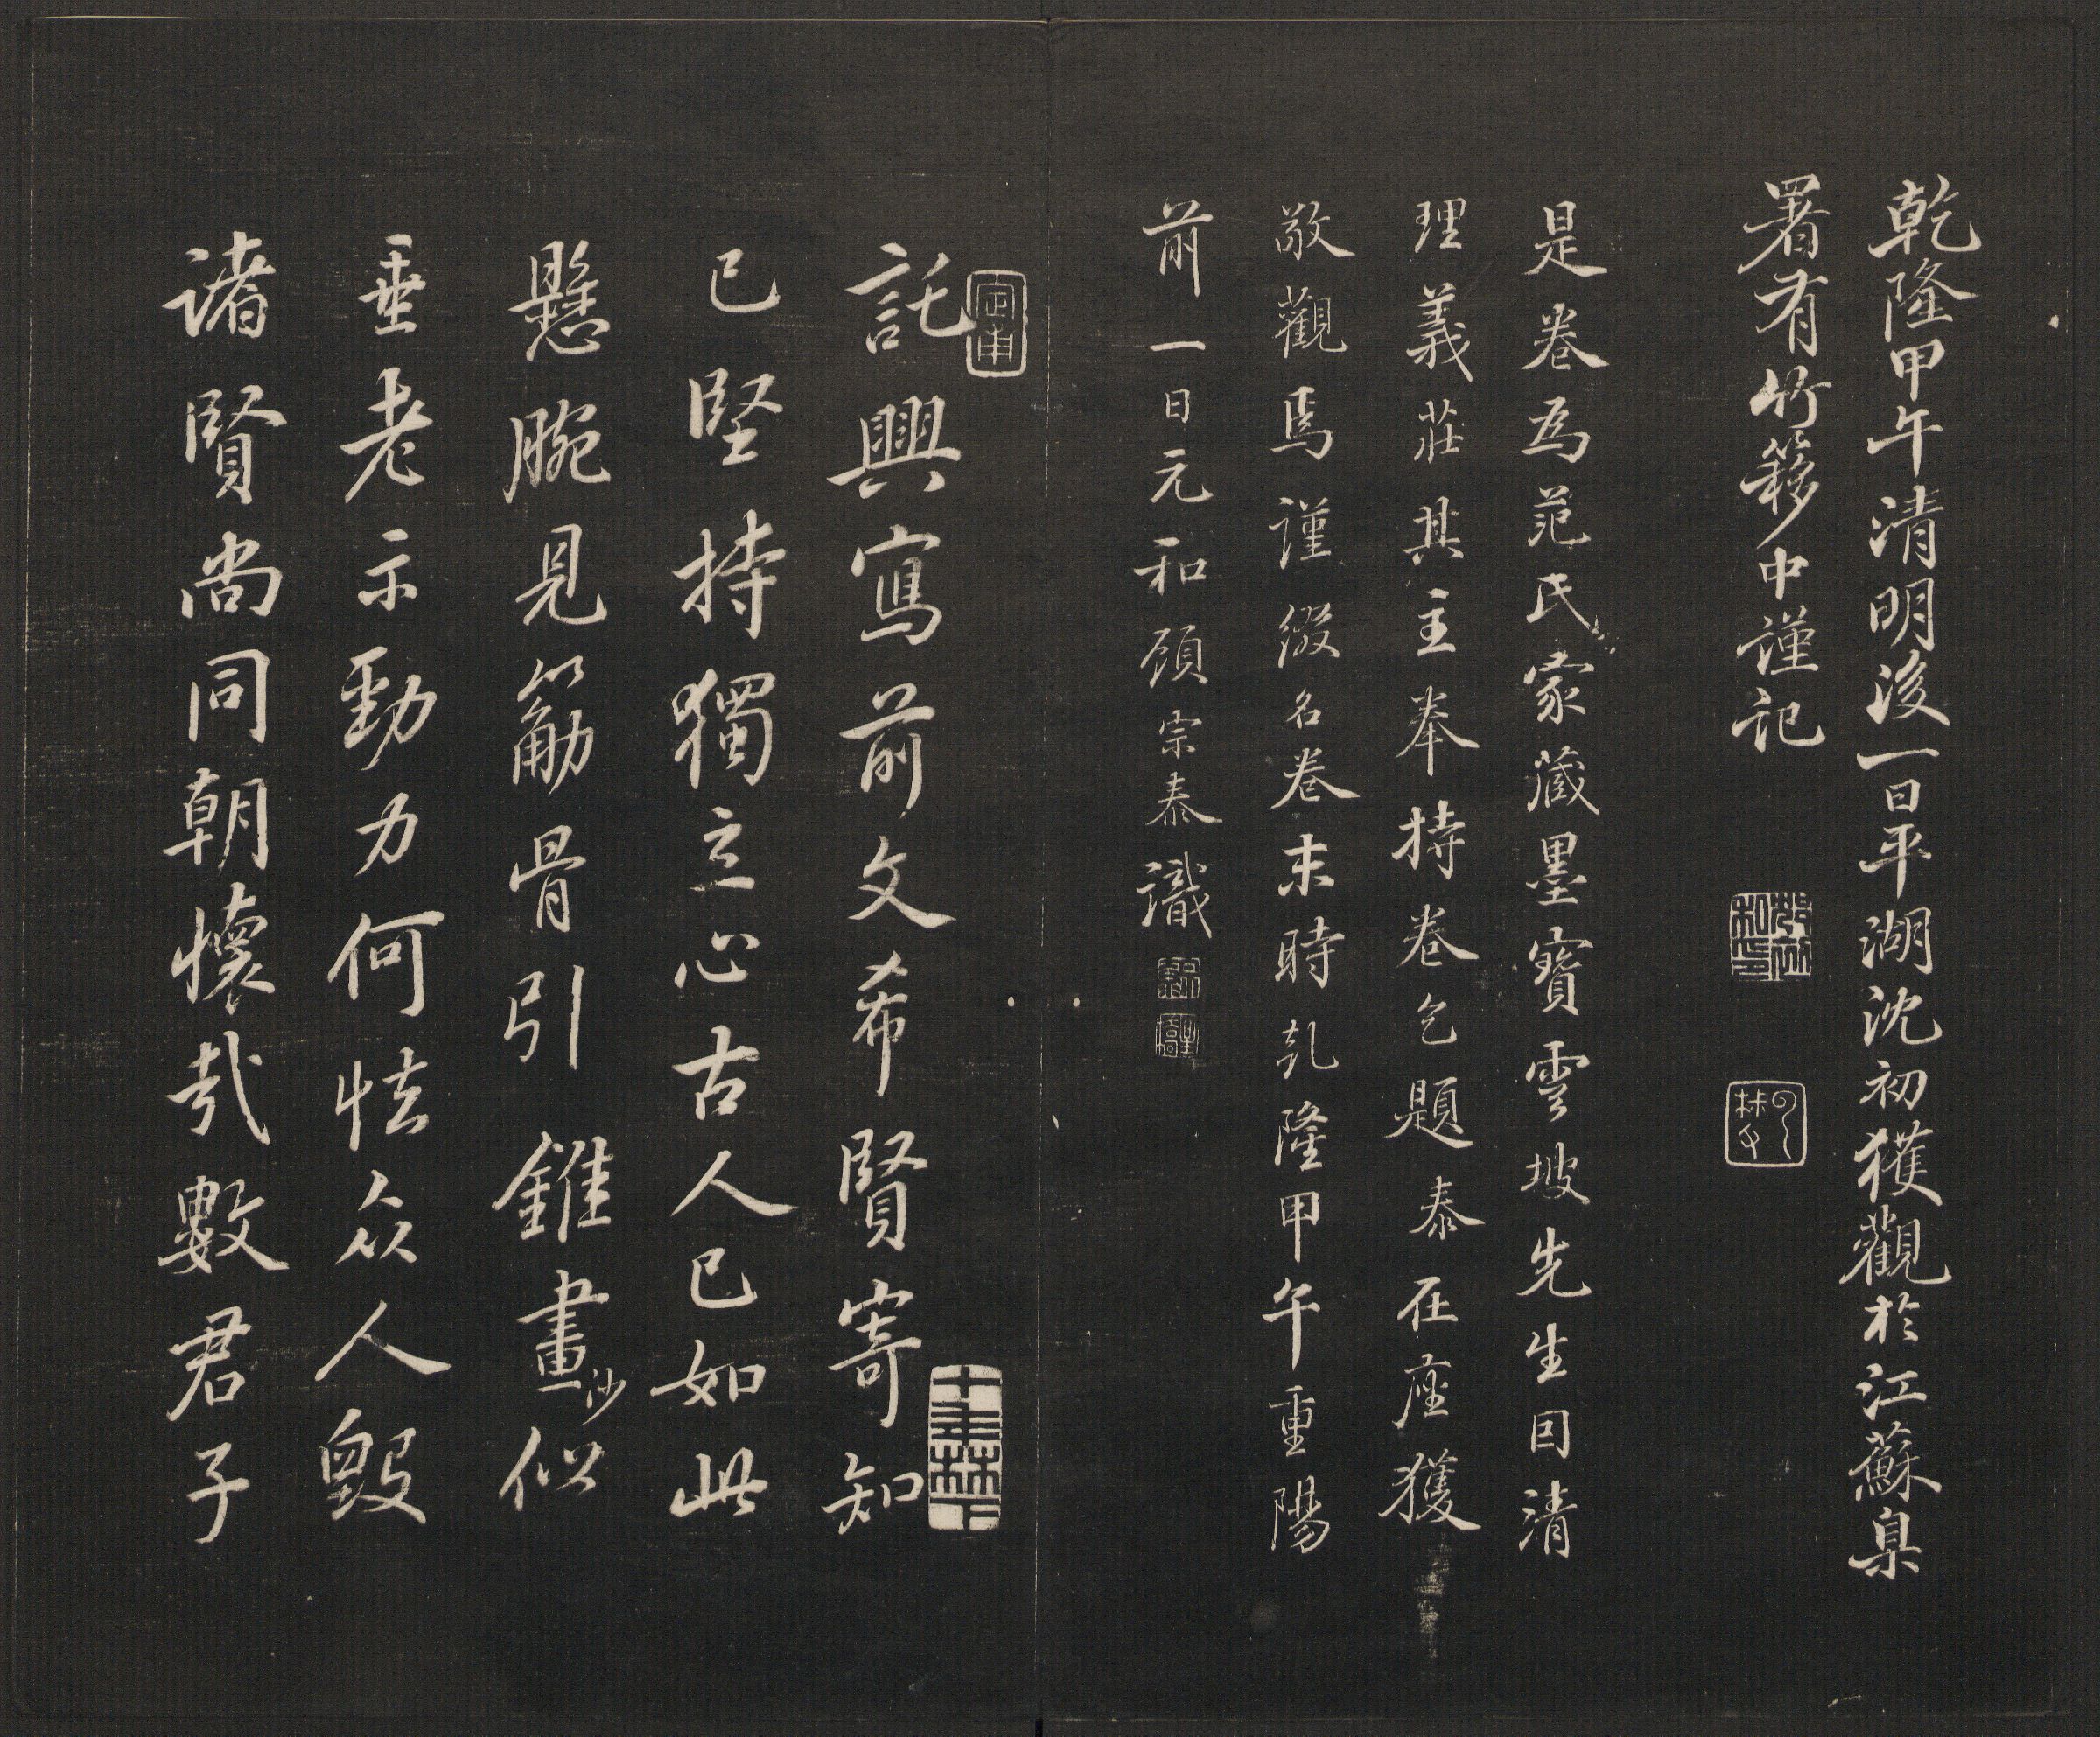 乾隆甲午清明後一日平湖沈初獲觀於江蘇臬
署有竹簃中謹記
是卷為范氏家藏墨寶雲坡先生因清
理義莊其主奉持卷乞題泰在座獲
敬觀焉謹綴名卷末時乹隆甲午重陽
前一日元和顧宗泰識
託興寫前文希賢寄知
已堅持獨立心古人已如此
懸腕見筋骨引錐畫沙似
垂老示勁力何怯众人毀
諸賢尚同朝懷哉數君子